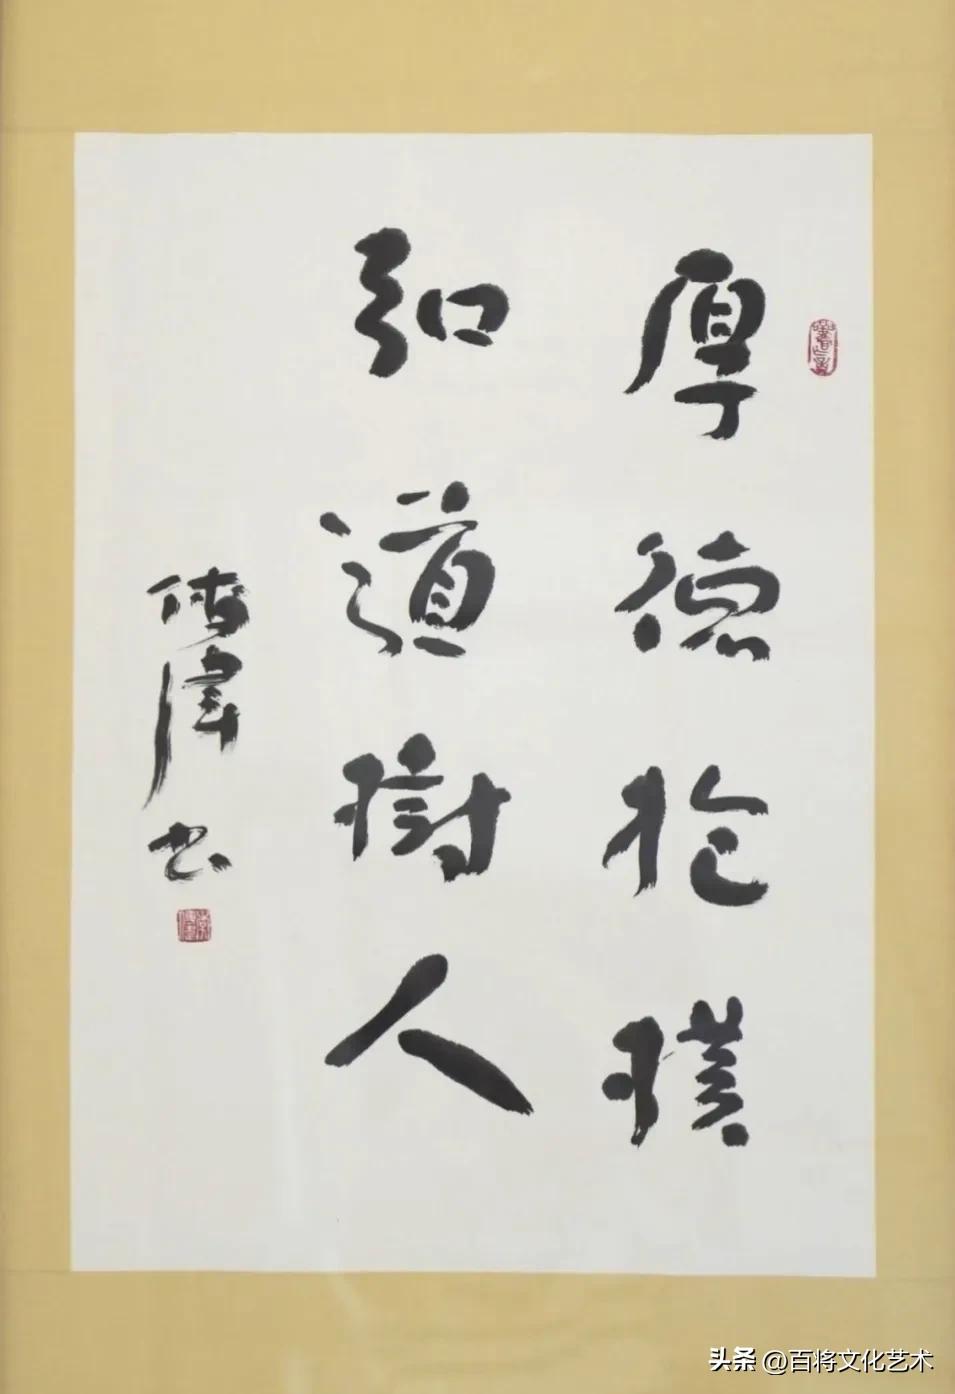 厚德抱樸
弘道樹人
偉書
头条 @百将文化艺术